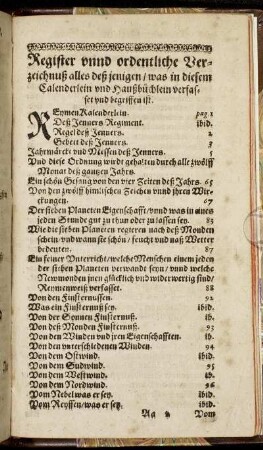 Register vnnd ordentliche Ver-
zeichnuß alles deß jenigen / was in diesem
Calenderlein vnd Haußbüchlein verfas-
set vnd begriffen ist.
REymen Kalenderlein. pag. 1
Deß Jenners Regiment. ibid.
Regel deß Jenners. 2
Gebett deß Jenners. 3
Jahrmärckt vnd Messen deß Jenners. 5
Vnd diese Ordnung wirdt gehalten durch alle zwölff
Monat deß gantzen Jahrs.
Ein schön Gesang von den vier Zeiten deß Jahrs. 65
Von den zwölff himlischen Zeichen vnnd ihren Wir-
ckungen. 67
Der sieben Planeten Eigenschafft / vnnd was in eines
jeden Stunde gut zu thun oder zu lassen sey. 83
Wie die sieben Planeten regieren nach deß Monden
schein / vnd wann sie schön / feucht vnd naß Wetter
bedeuten. 87
Ein feiner Vnterricht / welche Menschen einem jeden
der sieben Planeten verwandt seyn / vnnd welche
Newmonden jnen glücklich vnd widerwertig sind /
Reymenweiß verfasset. 88
Von den Finsternussen. 92
Was ein Finsternuß sey. ibid.
Von der Sonnen Finsternuß. ib.
Von deß Monden Finsternuß. 93
Von den Winden vnd jren Eigenschafften. ib.
Von den vnterschiedenen Winden. 94
Von dem Ostwind. ibid.
Von dem Sudwind. 95
Von dem Westwind. ib.
Von dem Nordwind. 96
Vom Nebel was er sey. ibid.
Vom Reyffen / was er sey. ibid.
Aa Vom